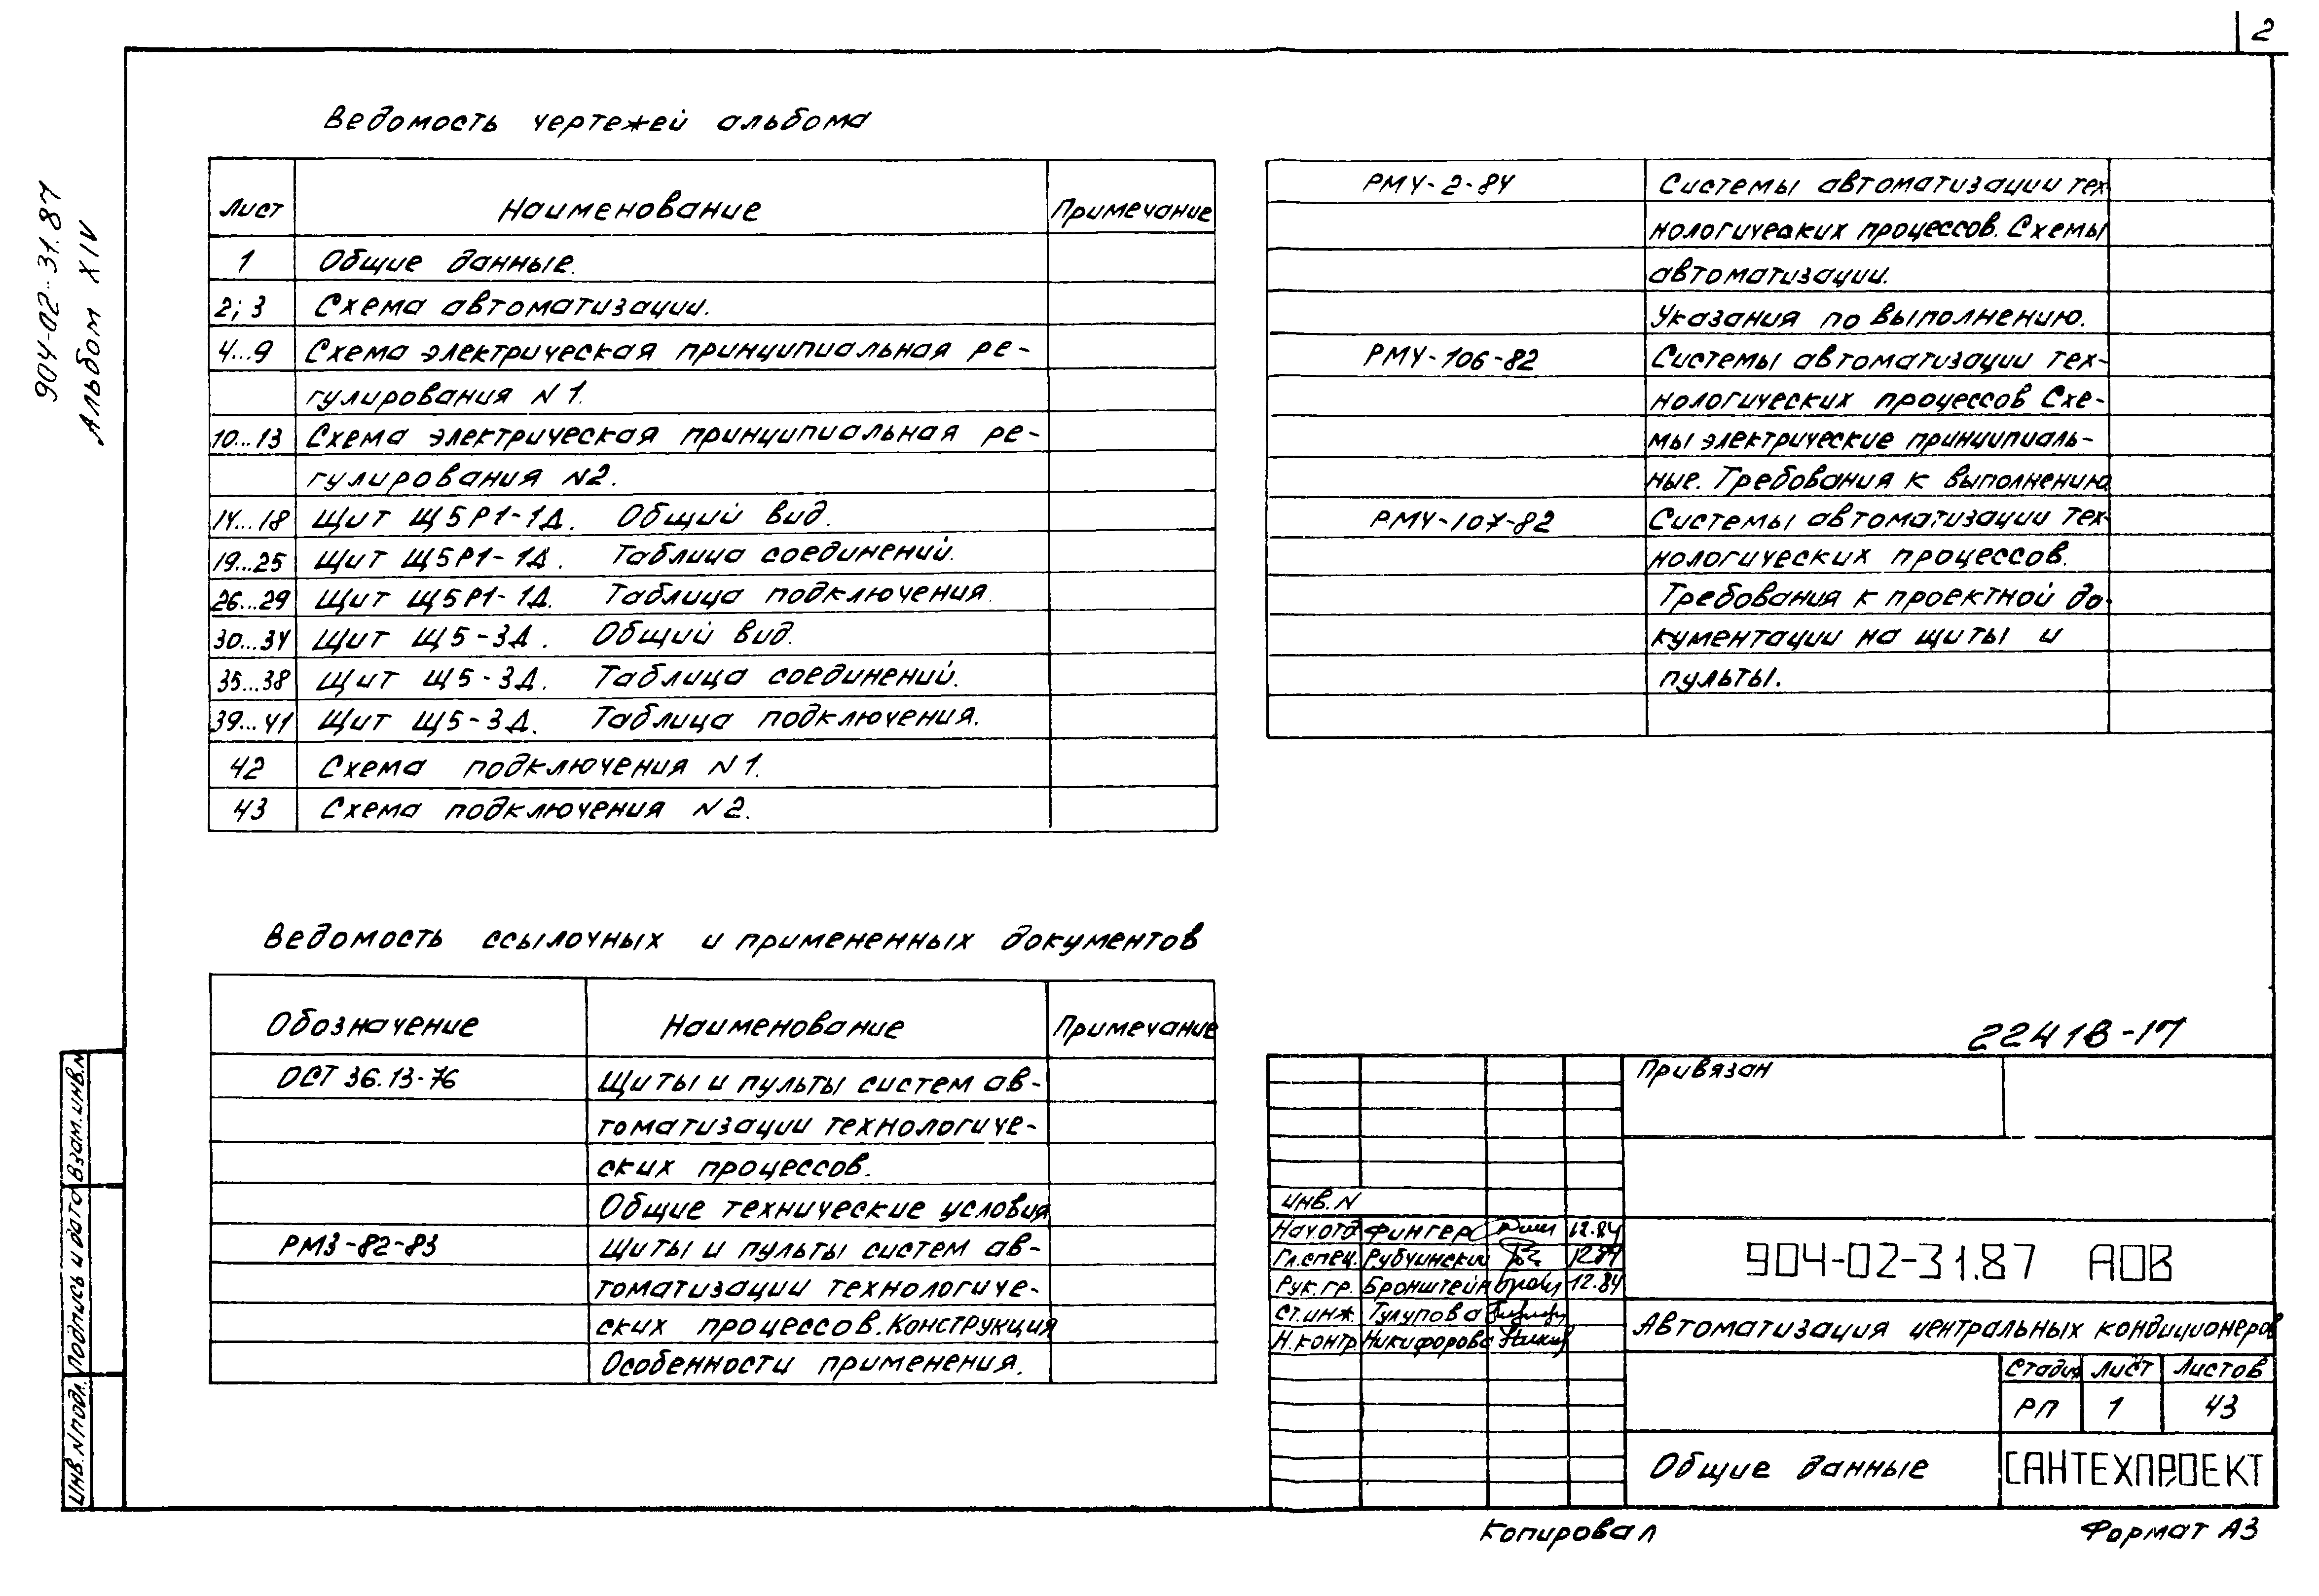 2
904-02-31.87
Альбом XIV
Ведомость чертежей альбома
Лист Наименование Примечание
1 Общие данные.
2; 3 Схема автоматизации.
4...9 Схема электрическая принципиальная ре-
гулирования N 1.
10...13 Схема электрическая принципиальная ре-
гулирования N2.
14...18 Щит Щ5Р1-1Д. Общий вид.
19...25 Щит Щ5Р1-1Д. Таблица соединений.
26...29 Щит Щ5Р1-1Д. Таблица подключения.
30...34 Щит Щ5-3Д. Общий вид.
35...38 Щит Щ5-3Д. Таблица соединений.
39...41 Щит Щ5-3Д. Таблица подключения.
42 Схема подключения N 1.
43 Схема подключения N 2.
Ведомость ссылочных и примененных документов
Обозначение Наименование Примечание
ОСТ 36.13-76 Щиты и пульты систем ав-
томатизации технологиче-
ских процессов.
Общие технические условия
РМ3-82-83 Щиты и пульты систем ав-
томатизации технологиче-
ских процессов. Конструкция
Особенности применения.
РМ4-2-84 Системы автоматизации тех-
нологических процессов. Схемы
автоматизации.
Указания по выполнению.
РМ4-106-82 Системы автоматизации тех-
нологических процессов Схе-
мы электрические принципиаль-
ные. Требования к выполнению
РМ4-107-82 Системы автоматизации тех-
нологических процессов.
Требования к проектной до-
кументации на щиты и
пульты.
22418-17
Привязан
инв. N
Нач.отд Фингер 12.84
Гл.спец. Рубчинский 12.84
Рук.гр. Бронштейн 12.84
Ст.инж. Тулупова
Н.контр. Никифорова
904-02-31.87 АОВ
Автоматизация центральных кондиционеров
Стадия Лист Листов
РП 1 43
Общие данные
САНТЕХПРОЕКТ
Инв.N подл. Подпись и дата Взам.инв.N
Копировал
Формат А3